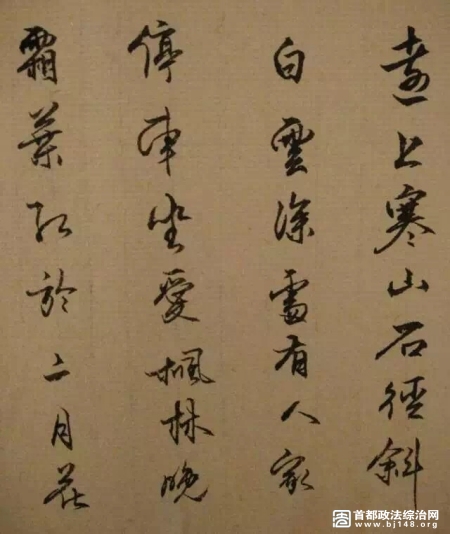 遠上寒山石徑斜
白雲深處有人家
停車坐愛楓林晚
霜葉紅於二月花
首都政法综治网
www.bj148.org